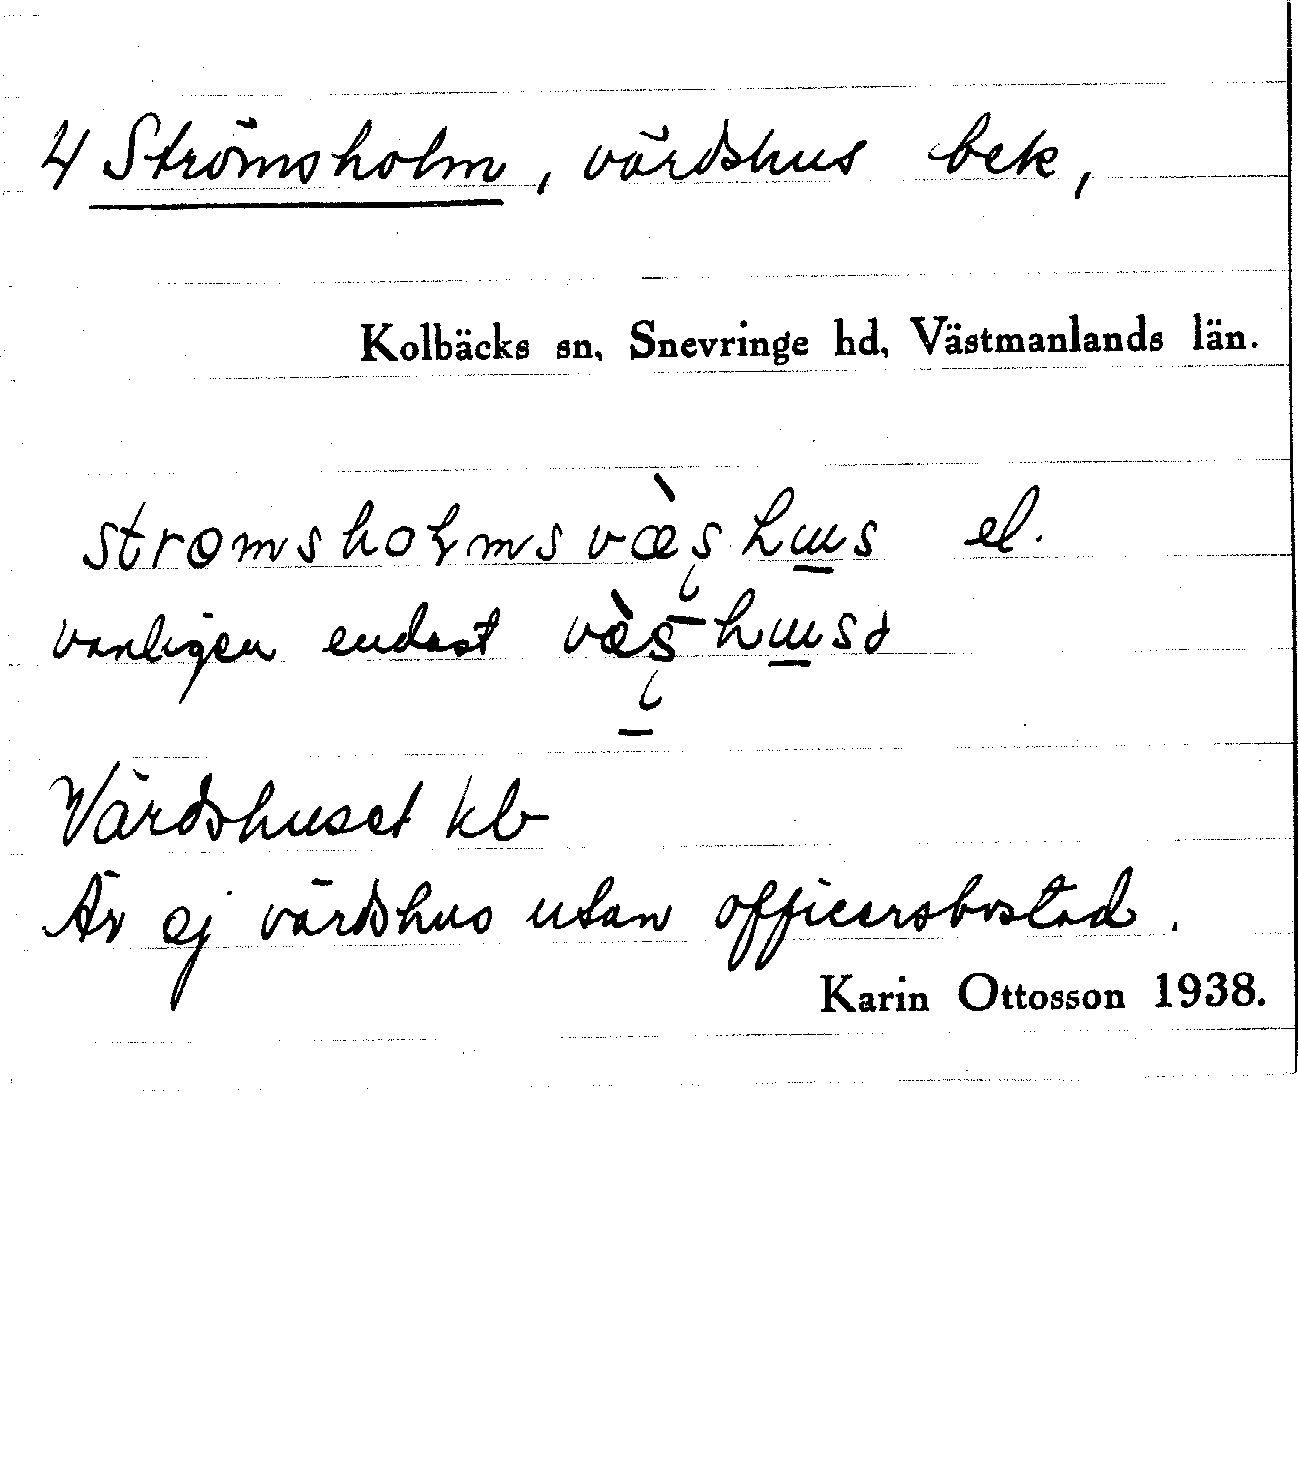 4 Strömsholm, värdshus bek,
Kolbäcks sn, Snevringe hd, Västmanlands län.
el.
vanligen endast
Värdshuset kb
Är ej värdshus utan officersbostad.
Karin Ottosson 1938.